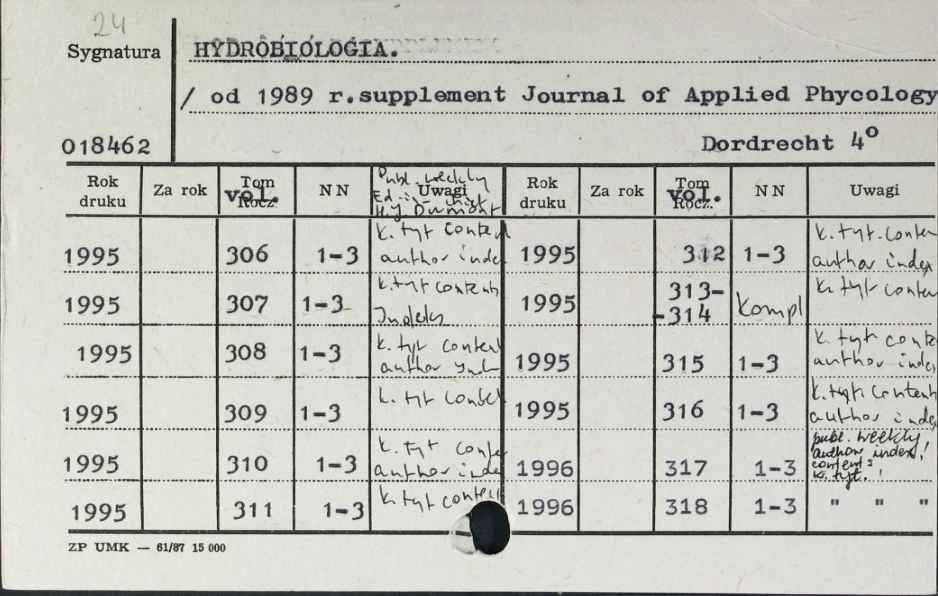 24
Sygnatura
HYDROBIOLOGIA.
/ od 1989 r.supplement Journal of Applied Phycology
018462
Dordrecht 4º
Rok druku Za rok Tom vol. Rocz. N N Uwagi Rok druku Za rok Tom vol. Rocz. N N Uwagi
Publ. weekly
Ed.-in-
H.J. Dumont
1995 306 1-3 k. tyt conten author inde 1995 312 1-3 k. tyt. conten author index
1995 307 1-3 k. tyt contents 1995 313--314 kompl k. tyt conten
1995 308 1-3 k. tyt content author 1995 315 1-3 k. tyt conte author index
1995 309 1-3 k. tyt 1995 316 1-3 k. tyt. contents author inde
1995 310 1-3 k. tyt conte author inde 1996 317 1-3 publ. weekly, author index, content: k. tyt.
1995 311 1-3 k. tyt content 1996 318 1-3 " " "
ZP UMK — 61/87 15 000